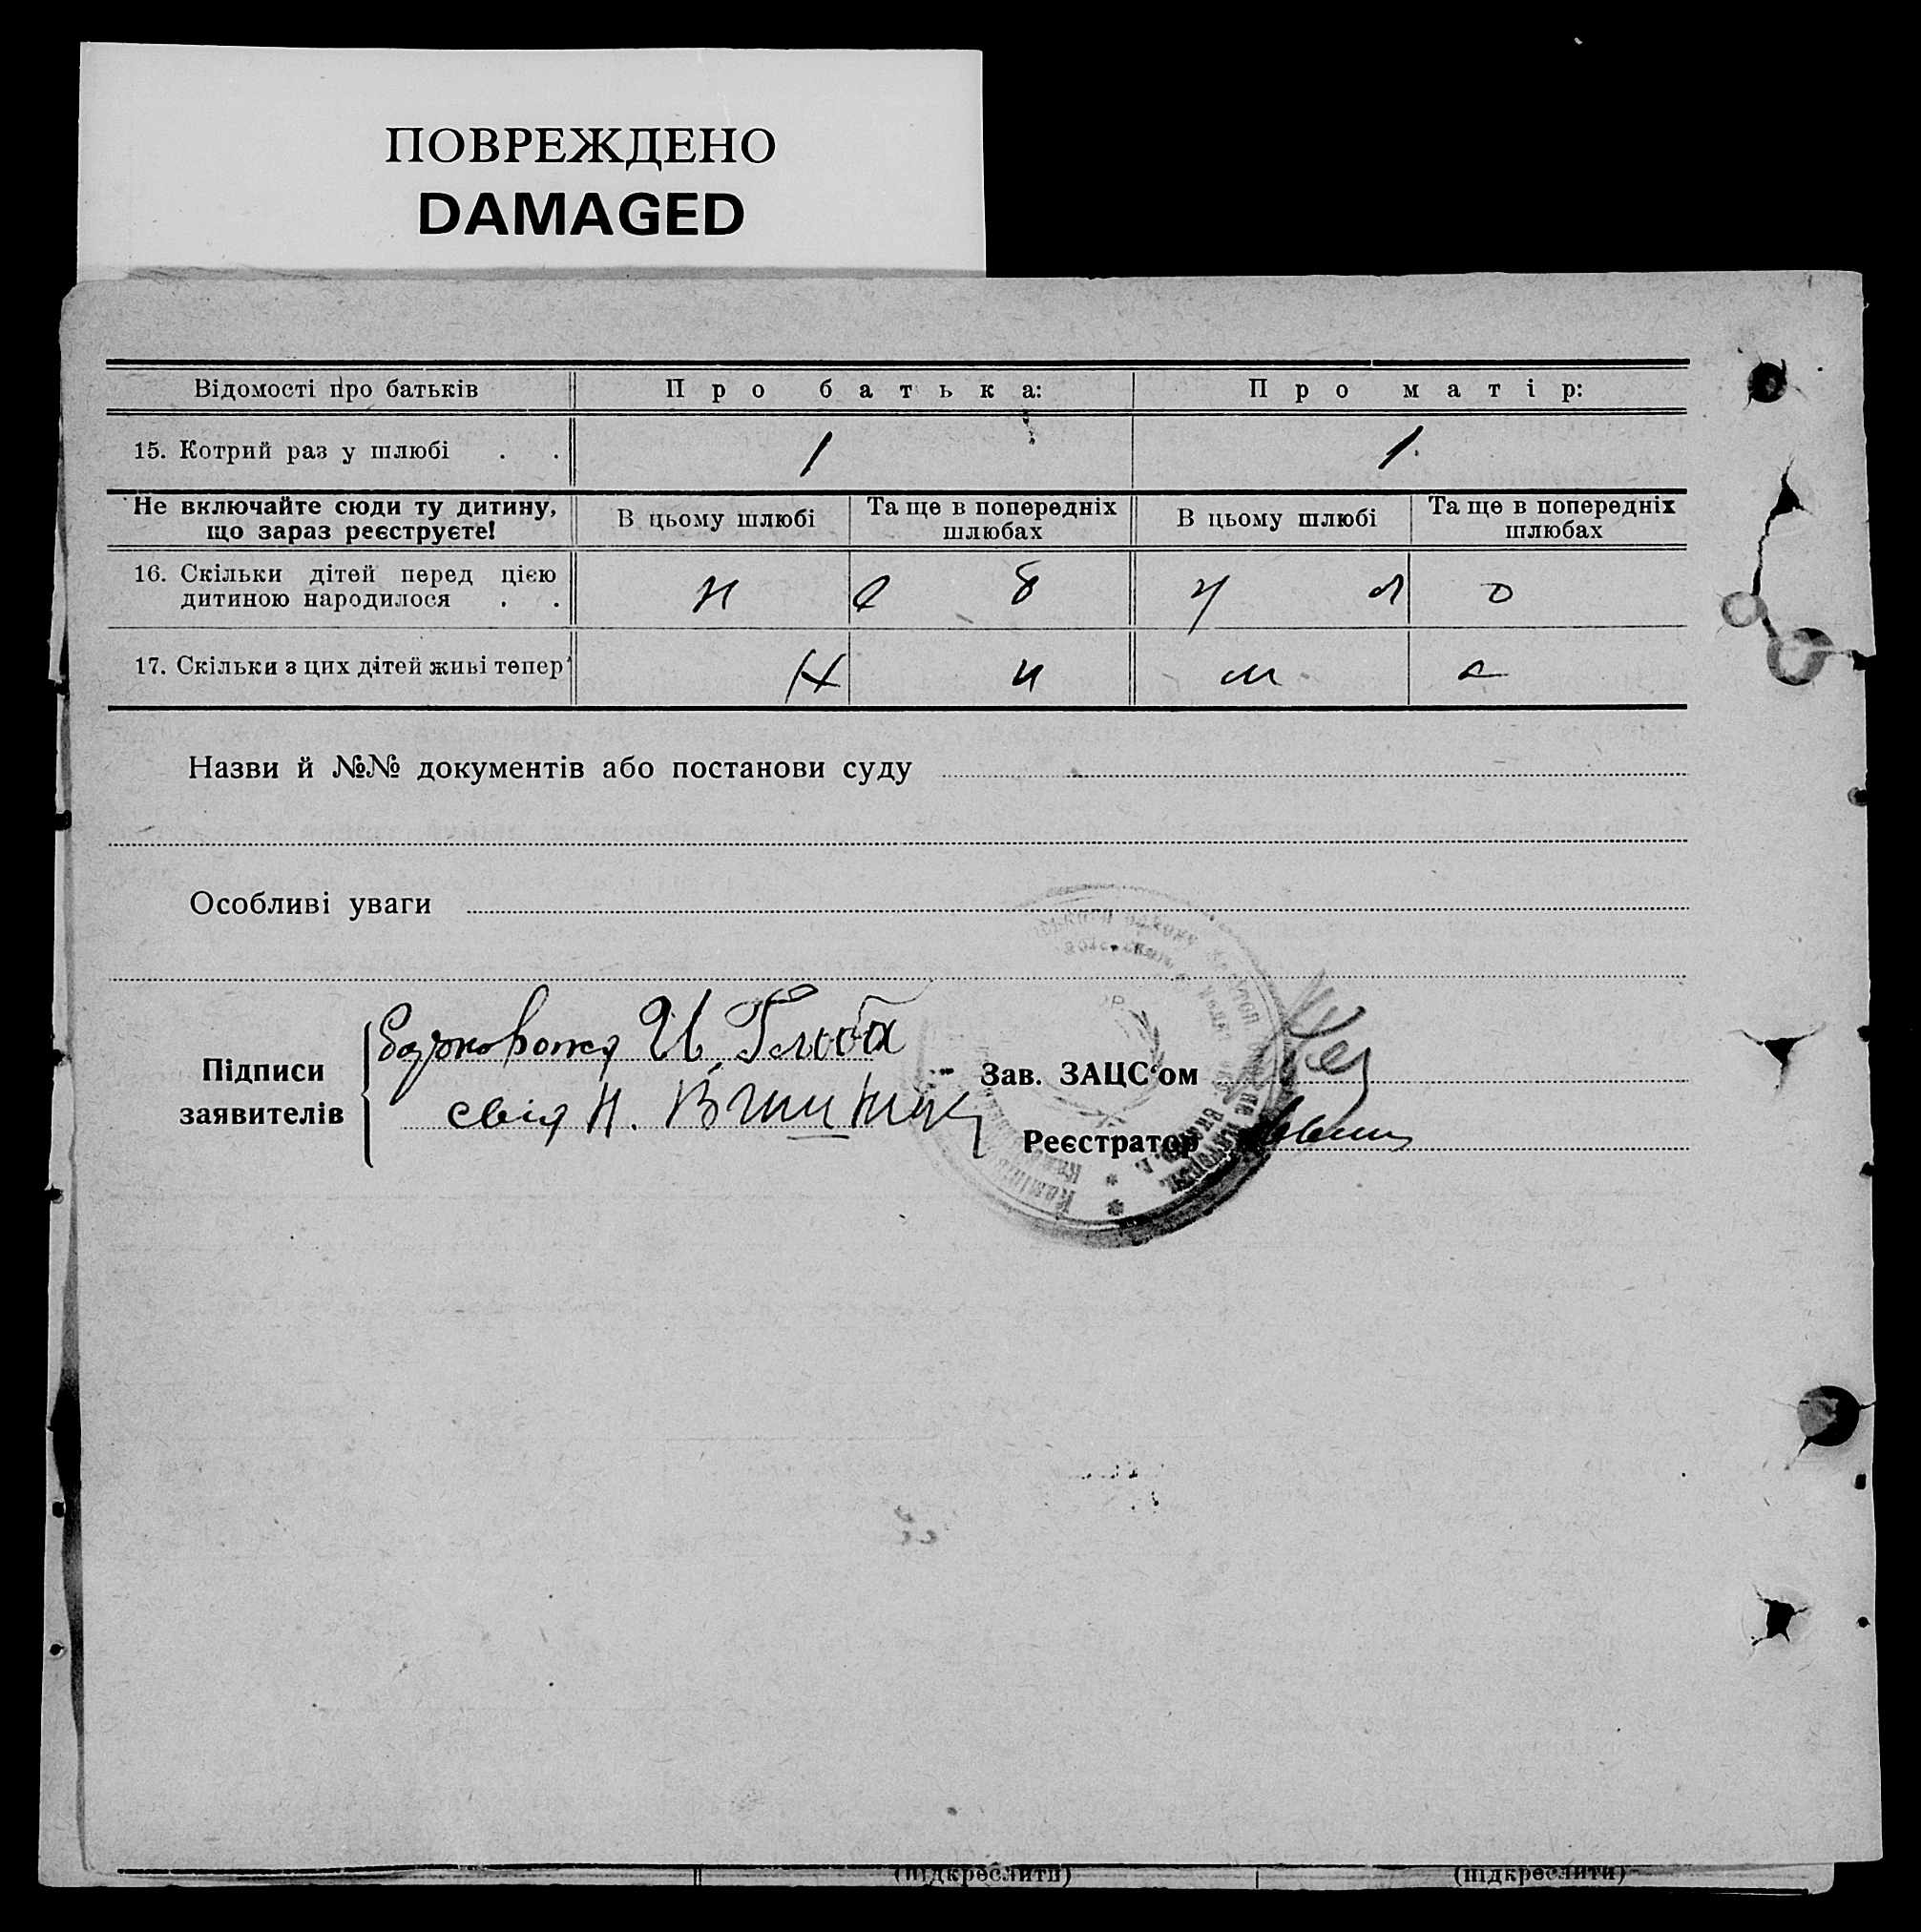 ПОВРЕЖДЕНО
DAMAGED
Відомості про батьків Про батька: Про матір:
15. Котрий раз у шлюбі . . 1 1.
Не включайте сюди ту дитину, що зараз реєструєте! В цьому шлюбі Та ще в попередніх шлюбах В цьому шлюбі Та ще в попередніх шлюбах
16. Скільки дітей перед цією
дитиною народилося . . н е б у л о
17. Скільки з цих дітей живі тепер Н и м а
Назви й №№ документів або постанови суду
Особливі уваги
И Глоба
Підписи
заявителів
Зав. ЗАЦС‘ом
Н.
Реєстратор
(підкреслити) (підкреслити)